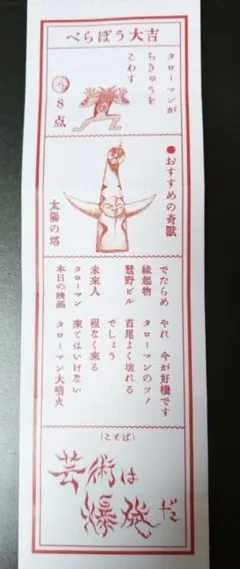 べらぼう大吉
タローマンが
ちきゅうを
こわす
8点
●おすすめの奇獣
太陽の塔
でたらめ やれ 今が好機です
縁起物 タローマンのツノ
鷲野ビル 首尾よく壊れる
でしょう
未来人 程なく来る
タローマン 来てはいけない
本日の映画 タローマン大噴火
(ことば)
芸術は
爆発だ